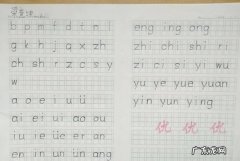 b p m f d t n l
g k h j q x zh
ch sh r z c s y
w
a o e i u ü
ai ei ui ao ou
iu ie üe er an
en in un ün ang
eng ing ong
zhi chi shi ri
zi ci si yi wu
yu ye yue yuan
yin yun ying
优 优 优